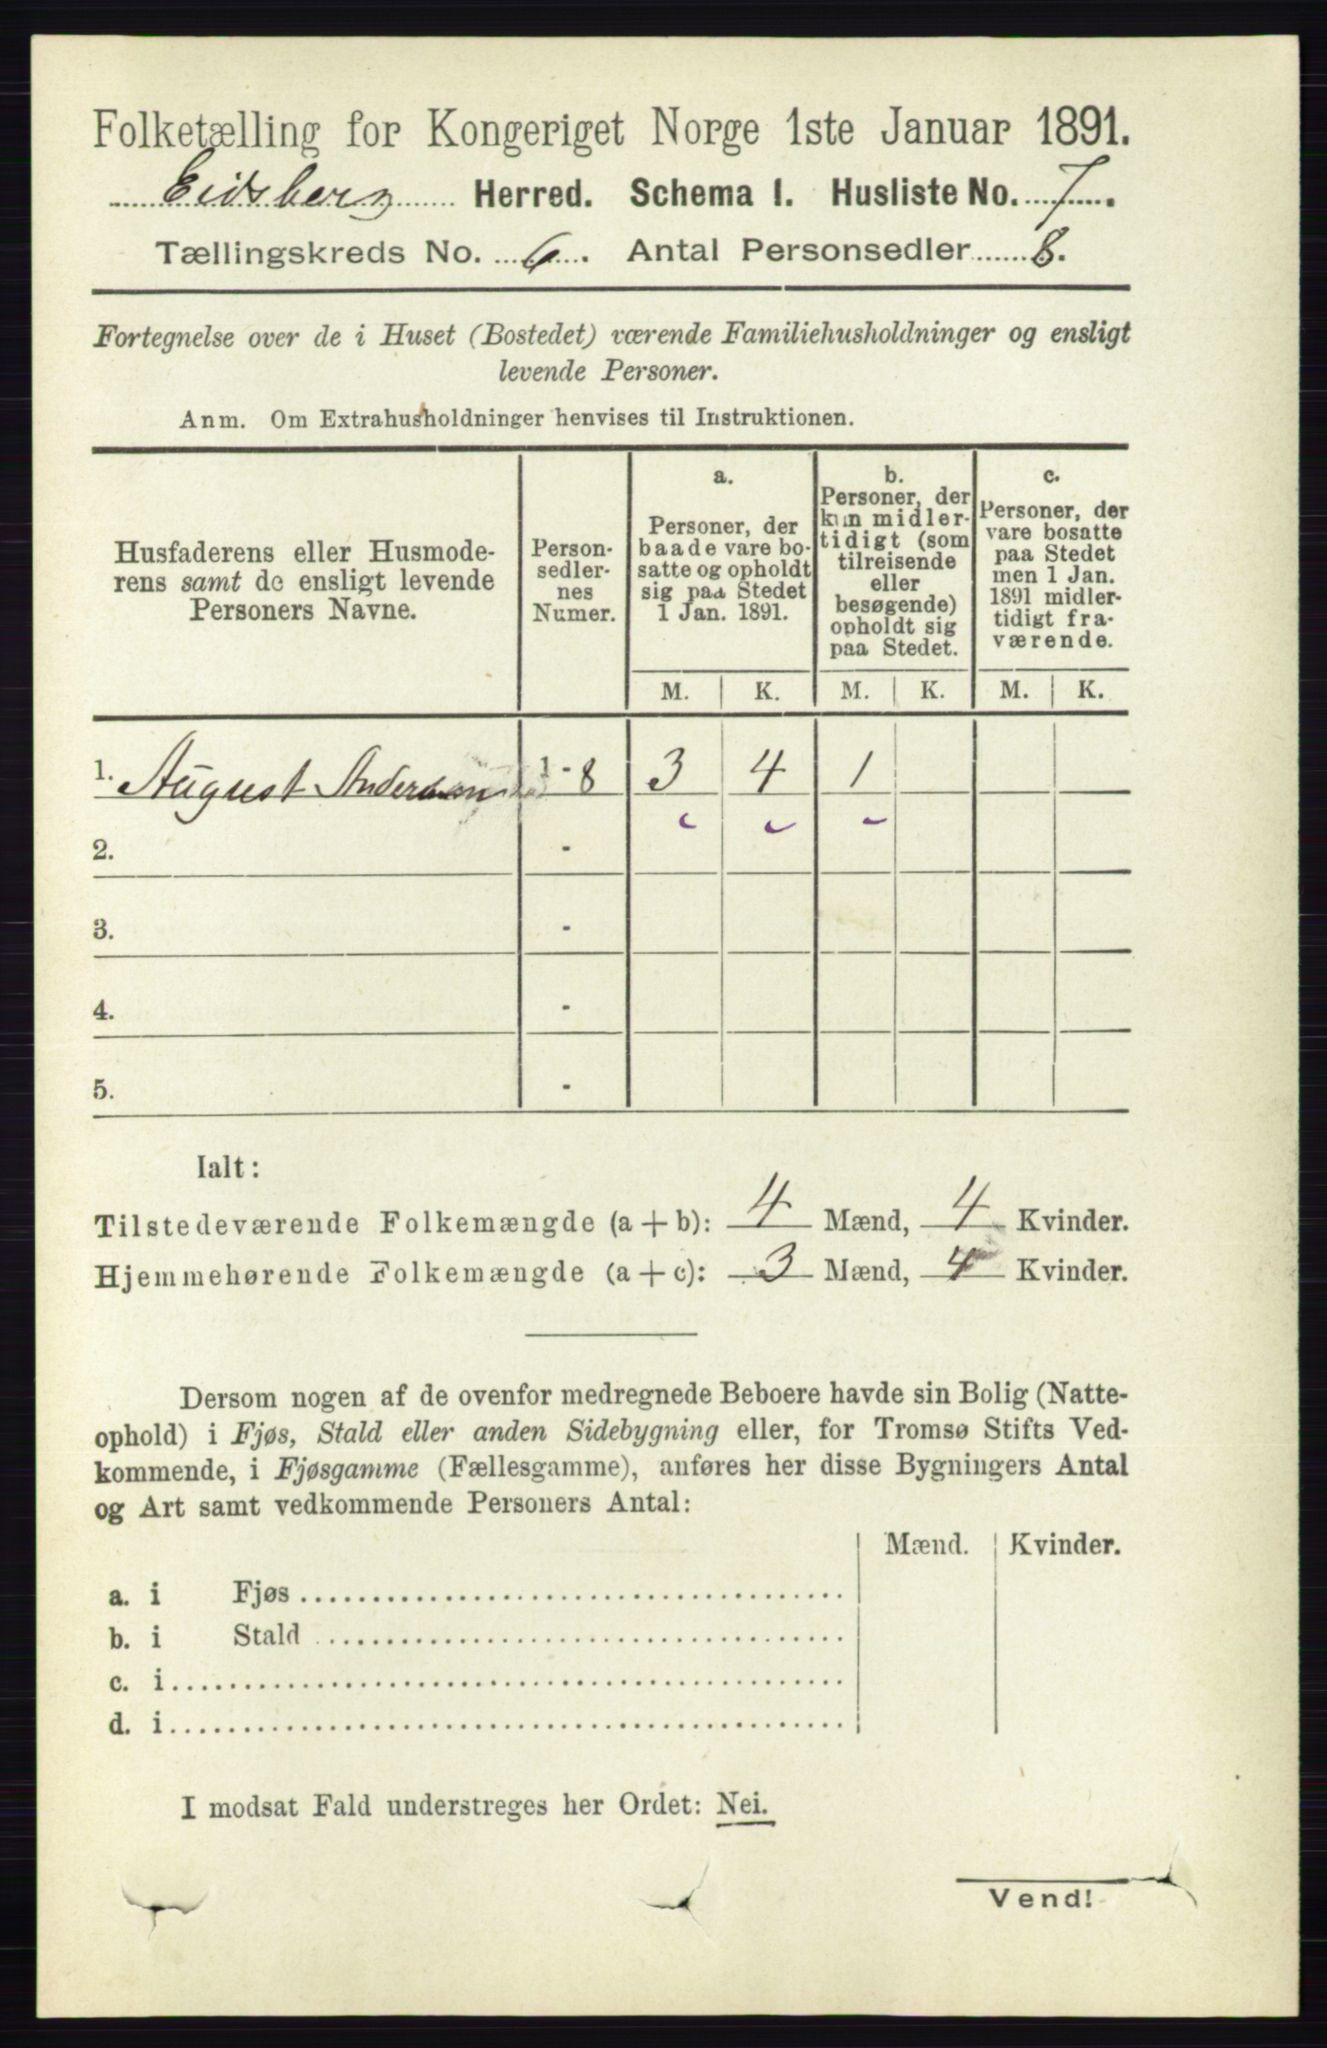 Folketælling for Kongeriget Norge 1ste Januar 1891.
Eidsberg Herred. Schema I. Husliste No. 7.
Tællingskreds No. 6. Antal Personsedler 8.
Fortegnelse over de i Huset (Bostedet) værende Familiehusholdninger og ensligt
levende Personer.
Anm. Om Extrahusholdninger henvises til Instruktionen.
Husfaderens eller Husmode-
rens samt de ensligt levende
Personers Navne.
Person-
sedler-
nes
Numer.
a.
Personer, der
baade vare bo-
satte og opholdt
sig paa Stedet
1 Jan. 1891.
b.
Personer, der
kun midler-
tidigt (som
tilreisende
eller
besøgende)
opholdt sig
paa Stedet.
c.
Personer, der
vare bosatte
paa Stedet
men 1 Jan.
1891 midler-
tidigt fra-
værende.
M. K. M. K. M. K.
1. August Andersen 1-8 3 4 1
2. -
3. -
4. -
5. -
Ialt:
Tilstedeværende Folkemængde (a+b): 4 Mænd, 4 Kvinder.
Hjemmehørende Folkemængde (a+c): 3 Mænd, 4 Kvinder.
Dersom nogen af de ovenfor medregnede Beboere havde sin Bolig (Natte-
ophold) i Fjøs, Stald eller anden Sidebygning eller, for Tromsø Stifts Ved-
kommende, i Fjøsgamme (Fællesgamme), anføres her disse Bygningers Antal
og Art samt vedkommende Personers Antal:
Mænd. Kvinder.
a. i Fjøs
b. i Stald
c. i
d. i
I modsat Fald understreges her Ordet: Nei.
Vend!